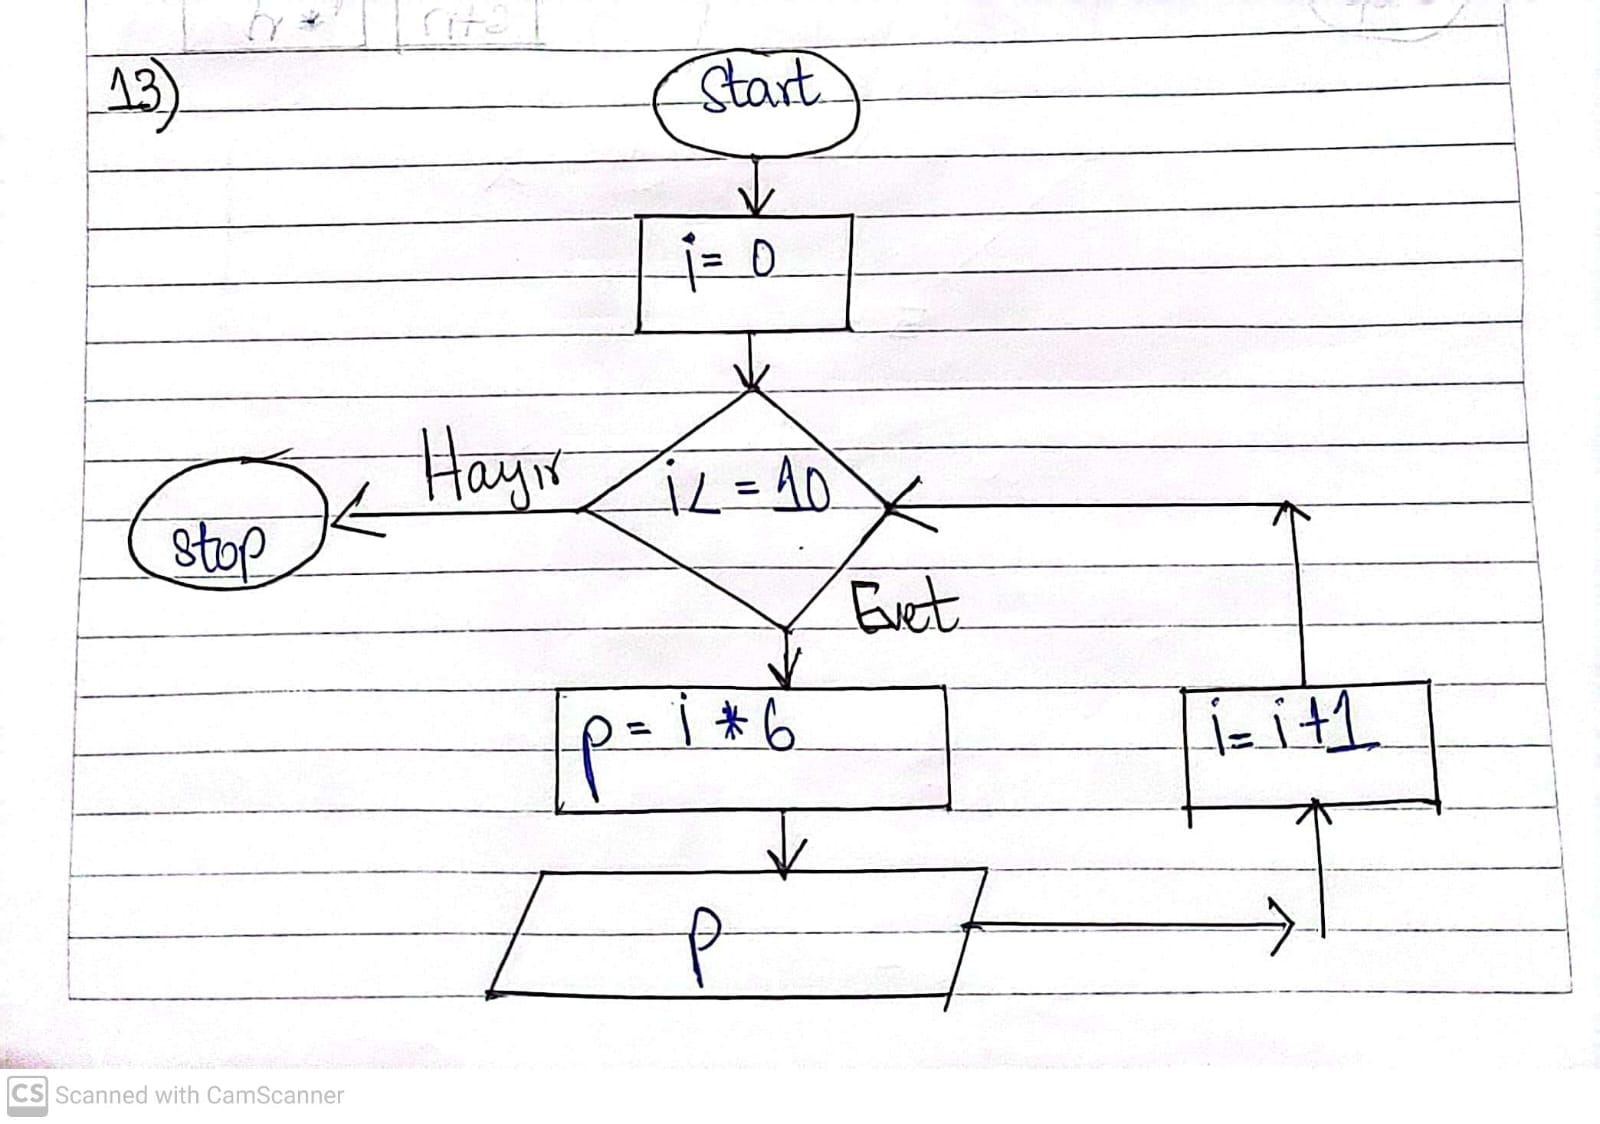 13)
Start
i= 0
i< = 10
Hayır
stop
Evet
p= i * 6
i= i+1
p
CS Scanned with CamScanner